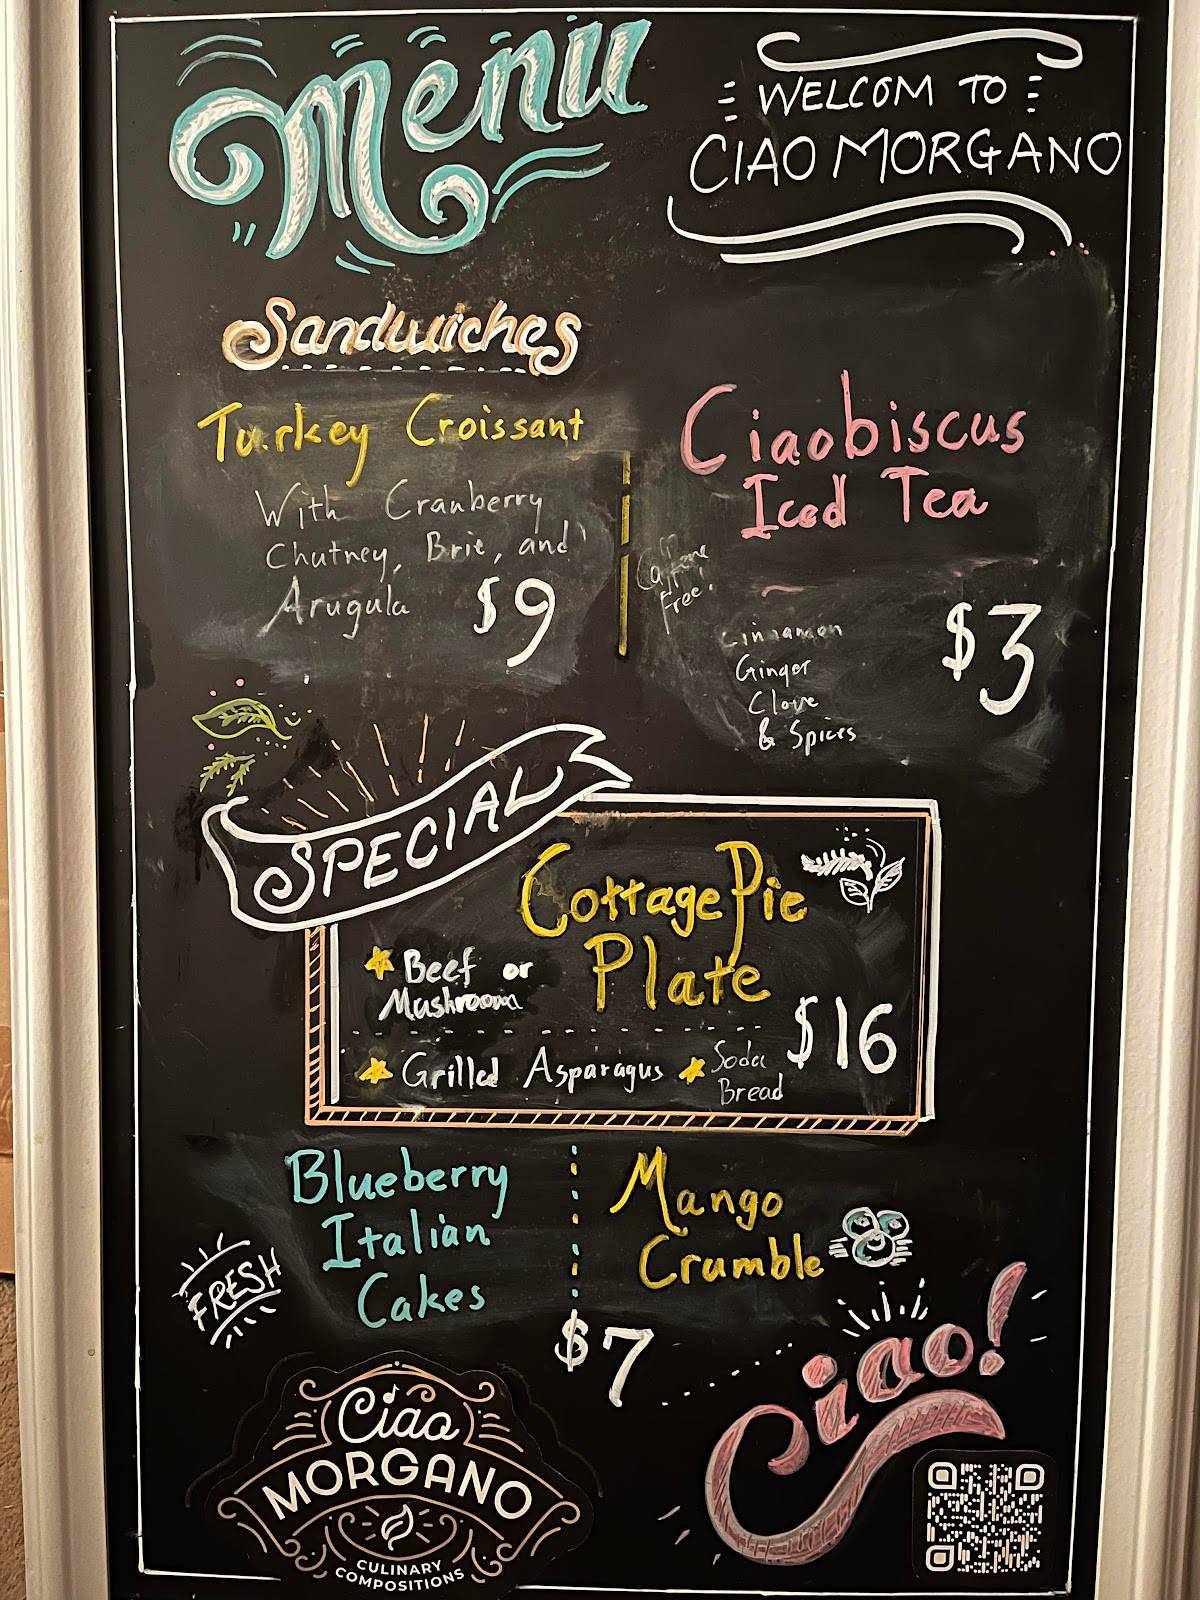 Menu
WELCOM TO
CIAO MORGANO
Sandwiches
Turkey Croissant
With Cranberry
Chutney, Brie, and
Arugula $9
Ciaobiscus
Iced Tea
Caffeine
Free
Cinnamon
Ginger
Clove
& Spices
$3
SPECIAL
Cottage Pie
Plate
Beef or
Mushroom
Grilled Asparagus
Soda
Bread
$16
Blueberry
Italian
Cakes
Mango
Crumble
$7
FRESH
Ciao!
Ciao
MORGANO
CULINARY
COMPOSITIONS